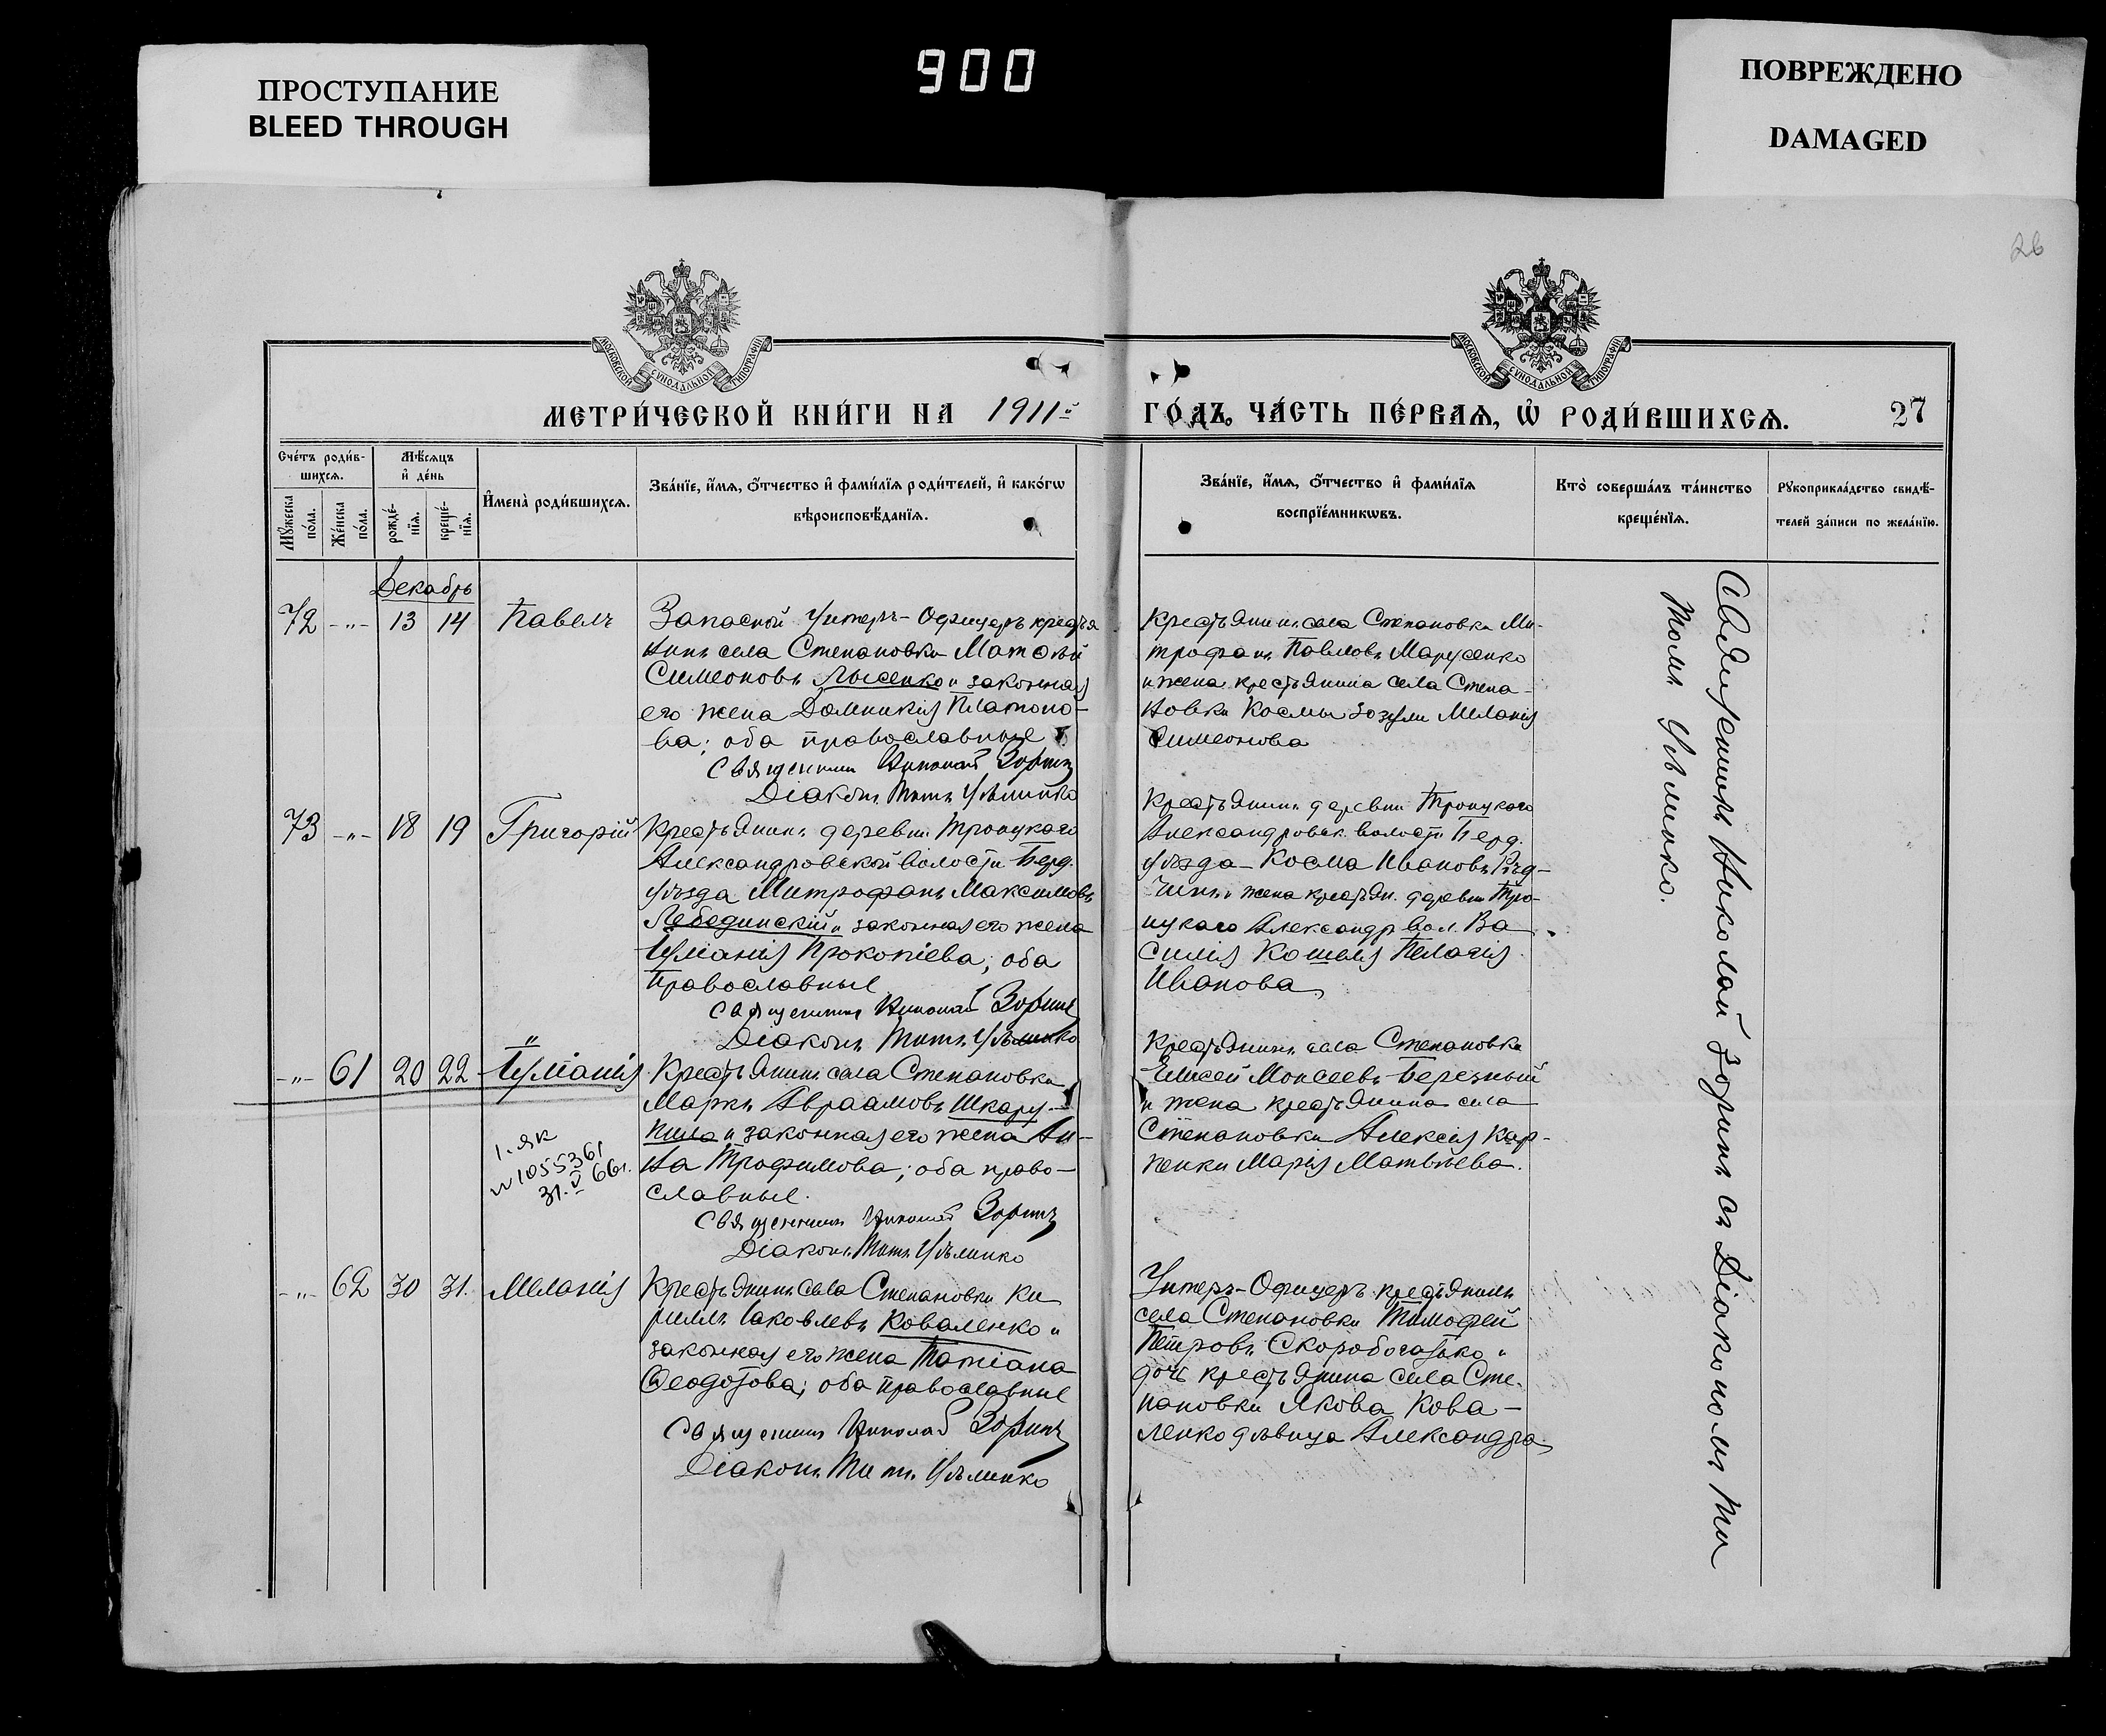 ПРОСТУПАНИЕ
BLEED THROUGH
900
ПОВРЕЖДЕНО
DAMAGED
26
МОСКОВСКОЙ СѴНОДАЛЬНОЙ ТИПОГРАФІИ
МОСКОВСКОЙ СѴНОДАЛЬНОЙ ТИПОГРАФІИ
МЕТРИ́ЧЕСКОЙ КНИ́ГИ НА 1911й
ГО́ДЪ, ЧА́СТЬ ПЕ́РВАѦ, Ѽ РОДИ́ВШИХСѦ.
27
Сче́тъ роди́в-
шихсѧ.
Мѣ́сѧцъ
и҆ де́нь
Мꙋ́жеска
по́ла.
Же́нска
по́ла.
рожде́-
нїѧ.
креще́-
нїѧ.
И҆мена̀ роди́вшихсѧ.
Зва́нїе, и҆́мѧ, ѻ҆́тчество и҆ фами́лїѧ роди́телей, и҆ како́гѡ
вѣроисповѣ́данїѧ.
Зва́нїе, и҆́мѧ, ѻ҆́тчество и҆ фами́лїѧ
воспрїе́мникѡвъ.
Кто̀ соверша́лъ та́инство
креще́нїѧ.
Рꙋкоприкла́дство свидѣ́-
телей за́писи по жела́нїю.
Декабрь
72 -"- 13 14 Павелъ
Запасной Унтеръ-Офицеръ крестья
нинъ села Степановки Матѳѣй
Симеоновъ Лысенко и законная
его жена Домникія Платоно-
ва; оба православные
Священникъ Николай Зоринъ
Діаконъ Титъ Увлинко
Крестьянинъ села Степановки Ми-
трофанъ Павловъ Марусенко
и жена крестьянина села Степа-
новки Космы Зозули Меланія
Симеонова
73 -"- 18 19 Григорій
Крестьянинъ деревни Троицкаго
Александровской волости Берд.
уѣзда Митрофанъ Максимовъ
Лебединскій и законная его жена
Іуліанія Прокопіева; оба
православные
Священникъ Николай Зоринъ
Діаконъ Титъ
Крестьянинъ деревни Троицкаго
Александровск. волости Берд.
уѣзда Косма Ивановъ
и жена крестьян. деревни Тро-
ицкаго Александр вол. Ва
силія Кошеля Пелагія
Иванова
-"- 61 20 22 Іуліанія
Крестьянинъ села Степановки
Маркъ Авраамовъ Шкару-
пило и законная его жена Ан-
на Трофимова; оба право-
славные.
Священникъ Николай Зоринъ
Діаконъ Титъ
1. як
№ 1055361
31.V 66г.
Крестьянинъ села Степановки
Елисей Моисеевъ Березный
и жена крестьянина села
Степановки Алексія Кар-
пенки Марія Матвѣева.
-"- 62 30 31. Меланія
Крестьянинъ села Степановки Ки
риллъ Іаковлевъ Коваленко и
законная его жена Татіана
Ѳеодотова; оба православные
Священникъ Николай Зоринъ
Діаконъ Титъ
Унтеръ-Офицеръ крестьянинъ
села Степановки Тимофей
Петровъ Скоробогатько и
дочь крестьянина села Сте-
пановки Якова Кова-
ленко дѣвица Александра.
Священникъ Николай Зоринъ съ Діакономъ Ти
томъ